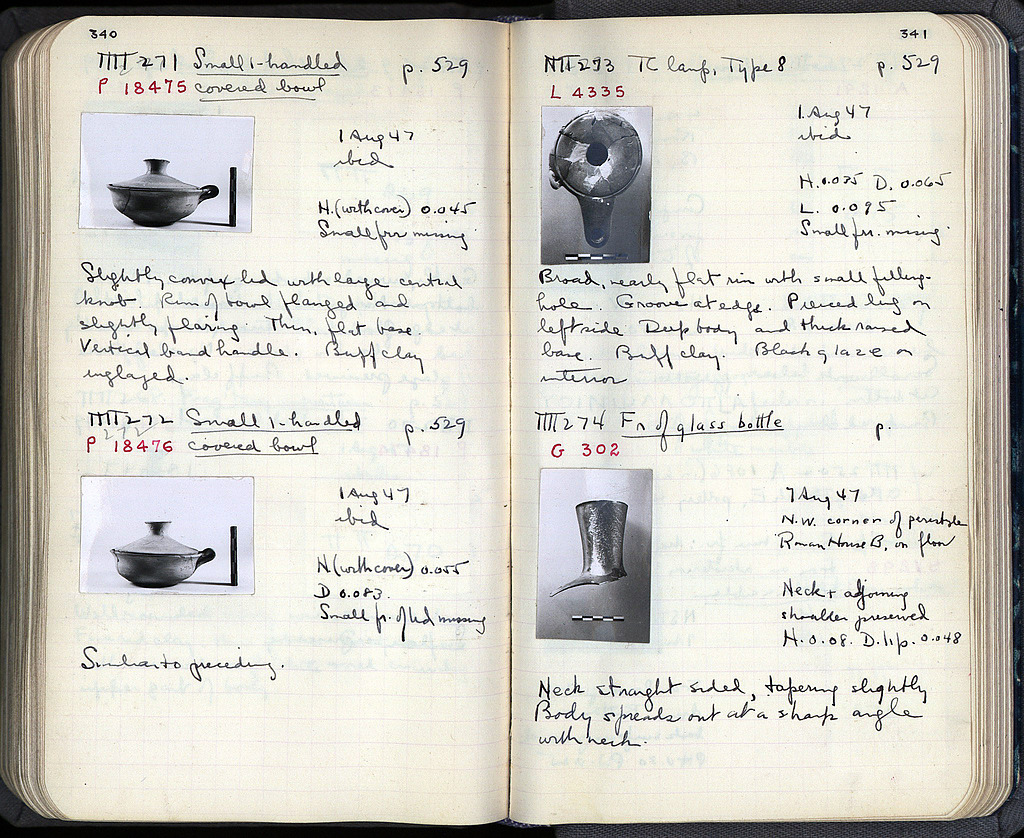 340
ΠΠ 271 Small 1-handled p. 529
P 18475 covered bowl
1 Aug 47
ibid
H. (with cover) 0.045
Small frr missing
Slightly convex lid with large central
knob. Rim of bowl flanged and
slightly flaring. Thin, flat base.
Vertical band handle. Buff clay
unglazed.
ΠΠ 272 Small 1-handled p. 529
272
P 18476 covered bowl
1 Aug 47
ibid
H (with cover) 0.055
D 0.083.
Small fr. of lid missing
Similar to preceding.
341
ΠΠ 273 TC lamp, Type 8 p. 529
L 4335
1 Aug 47
ibid
H. 0.035 D. 0.065
L. 0.095
Small frr. missing
Broad, nearly flat rim with small filling-
hole. Groove at edge. Pierced lug on
left side Deep body and thick raised
base. Buff clay. Black glaze on
interior
ΠΠ 274 Fr of glass bottle p.
G 302
7 Aug 47
N.W. corner of peristyle
Roman House B, on floor
Neck + adjoining
shoulder preserved
H. 0.08. D. lip. 0.048
Neck straight sided, tapering slightly
Body spreads out at a sharp angle
with neck.